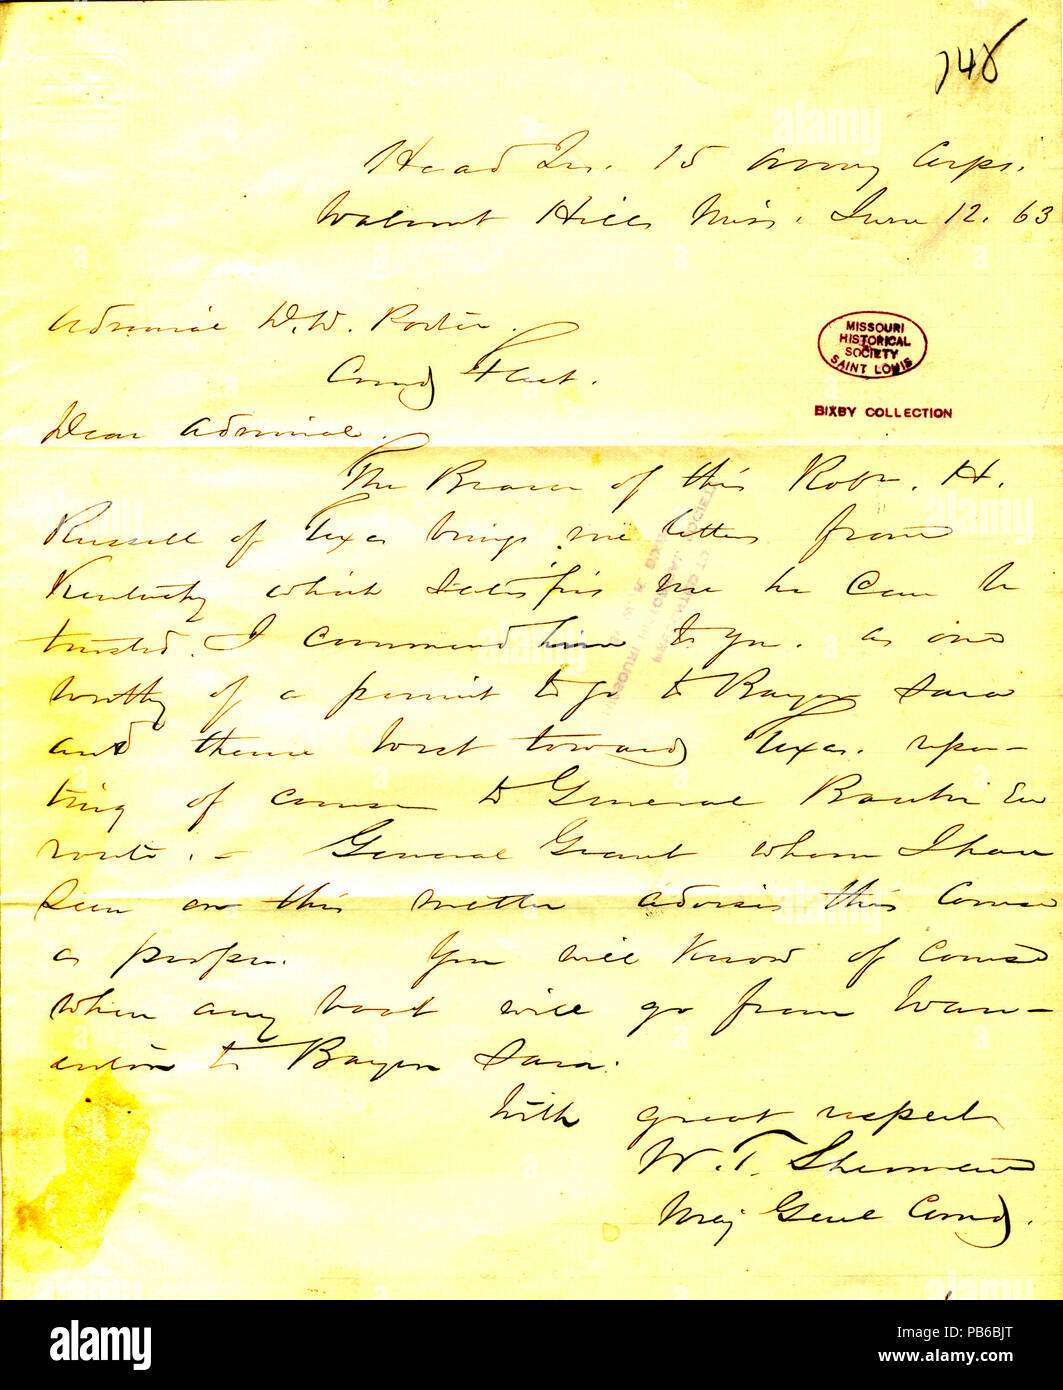 748
Head Qrs. 15 Army Corps.
Walnut Hills Miss. June 12. 63
Admiral D.W. Porter.
Comdg Fleet.
MISSOURI
HISTORICAL
SOCIETY
SAINT LOUIS
BIXBY COLLECTION
Dear Admiral.
The Bearer of this Robr. H.
Russell of Texas brings me letters from
Kentucky which satisfies me he can be
trusted. I commend him to you. as one
worthy of a permit to go to Bayou Sara
and thence West toward Texas. repor-
ting of course to General Banks En
route. - General Grant whom I have
seen on this matter advises this course
as proper. You will know of course
when any boat will go from Warr-
enton to Bayou Sara.
With great respect
W. T. Sherman
Maj Genl Comdg.
alamy
PB6BJT
www.alamy.com